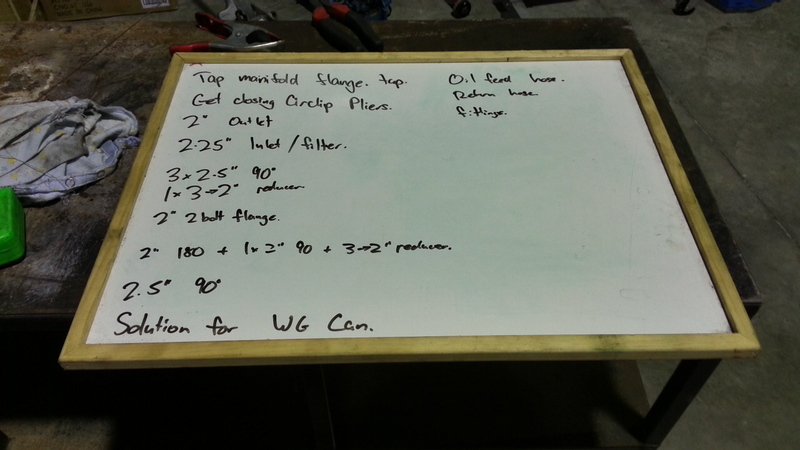 Tap manifold flange. top.
Get closing Circlip Pliers.
2" Outlet
2.25" Inlet / filter.
3 x 2.5" 90°
1 x 3→2" reducer
2" 2 bolt flange.
2" 180 + 1 x 2" 90 + 3→2" reducer.
2.5" 90°
Solution for WG Can.
Oil feed hose.
Return hose
fittings.